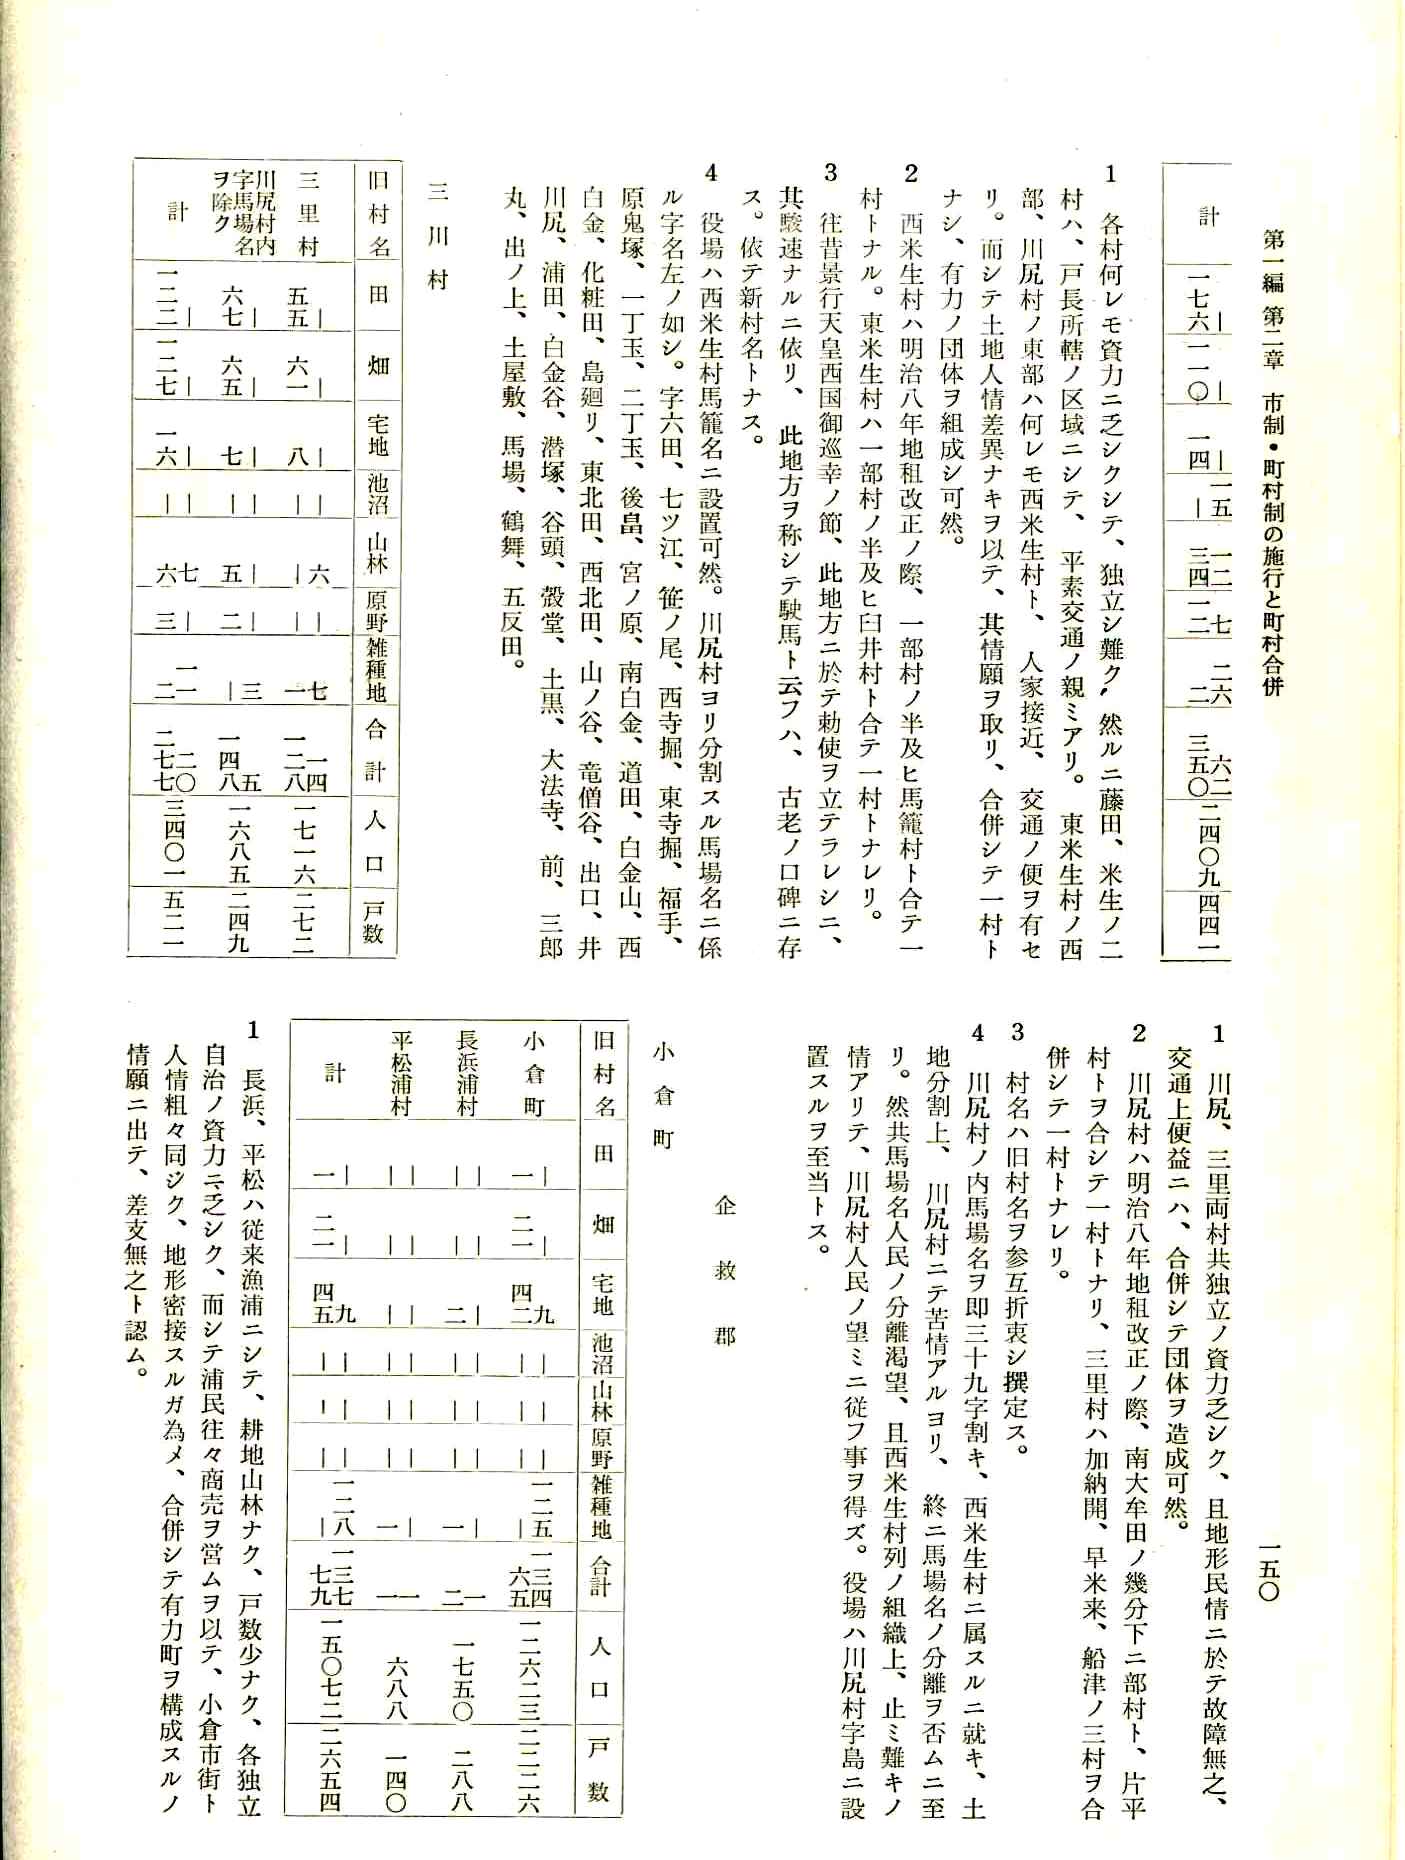 第一編 第二章 市制・町村制の施行と町村合併
一五〇
計 | | | 一五 一二 七 二六 六二
一七六 一一〇 一四 | 三四 一二 二 三五〇 二四〇九 四四一
1 各村何レモ資力ニ乏シクシテ、独立シ難ク、然ルニ藤田、米生ノ二
村ハ、戸長所轄ノ区域ニシテ、平素交通ノ親ミアリ。東米生村ノ西
部、川尻村ノ東部ハ何レモ西米生村ト、人家接近、交通ノ便ヲ有セ
リ。而シテ土地人情差異ナキヲ以テ、其情願ヲ取リ、合併シテ一村ト
ナシ、有力ノ団体ヲ組成シ可然。
2 西米生村ハ明治八年地租改正ノ際、一部村ノ半及ヒ馬籠村ト合テ一
村トナル。東米生村ハ一部村ノ半及ヒ臼井村ト合テ一村トナレリ。
3 往昔景行天皇西国御巡幸ノ節、此地方ニ於テ勅使ヲ立テラレシニ、
其駿速ナルニ依リ、此地方ヲ称シテ駛馬ト云フハ、古老ノ口碑ニ存
ス。依テ新村名トナス。
4 役場ハ西米生村馬籠名ニ設置可然。川尻村ヨリ分割スル馬場名ニ係
ル字名左ノ如シ。字六田、七ツ江、笹ノ尾、西寺掘、東寺掘、福手、
原鬼塚、一丁玉、二丁玉、後畠、宮ノ原、南白金、道田、白金山、西
白金、化粧田、島廻リ、東北田、西北田、山ノ谷、竜僧谷、出口、井
川尻、浦田、白金谷、潜塚、谷頭、殻堂、土黒、大法寺、前、三郎
丸、出ノ上、土屋敷、馬場、鶴舞、五反田。
三川村
旧村名 田 畑 宅地 池沼 山林 原野 雑種地 合計 人口 戸数
三里村 | | | | 六 | 七 一四
五五 六一 八 | | | 一 一二八 一七一六 二七二
川尻村内
字馬場名
ヲ除ク | | | | | | 三 五
六七 六五 七 | 五 二 | 一四八 一六八五 二四九
計 | | | | 七 | 一一 二〇
一二二 一二七 一六 | 六 三 二 二七七 三四〇一 五二一
1 川尻、三里両村共独立ノ資力乏シク、且地形民情ニ於テ故障無之、
交通上便益ニハ、合併シテ団体ヲ造成可然。
2 川尻村ハ明治八年地租改正ノ際、南大牟田ノ幾分下ニ部村ト、片平
村トヲ合シテ一村トナリ、三里村ハ加納開、早米来、船津ノ三村ヲ合
併シテ一村トナレリ。
3 村名ハ旧村名ヲ参互折衷シ撰定ス。
4 川尻村ノ内馬場名ヲ即三十九字割キ、西米生村ニ属スルニ就キ、土
地分割上、川尻村ニテ苦情アルヨリ、終ニ馬場名ノ分離ヲ否ムニ至
リ。然共馬場名人民ノ分離渇望、且西米生村列ノ組織上、止ミ難キノ
情アリテ、川尻村人民ノ望ミニ従フ事ヲ得ズ。役場ハ川尻村字島ニ設
置スルヲ至当トス。
企救郡
小倉町
旧村名 田 畑 宅地 池沼 山林 原野 雑種地 合計 人口 戸数
小倉町 | | 九 | | | 一二五 一三四
一 二二 四二 | | | | 六五 一二六二三 二二二六
長浜浦村 | | | | | | | 一
| | 二 | | | 一 二 一七五〇 二八八
平松浦村 | | | | | | | 一
| | | | | | 一 一 六八八 一四〇
計 | | 九 | | | 一二八 一三七
一 二二 四五 | | | | 七九 一五〇七二 二六五四
1 長浜、平松ハ従来漁浦ニシテ、耕地山林ナク、戸数少ナク、各独立
自治ノ資力ニ乏シク、而シテ浦民往々商売ヲ営ムヲ以テ、小倉市街ト
人情粗々同ジク、地形密接スルガ為メ、合併シテ有力町ヲ構成スルノ
情願ニ出テ、差支無之ト認ム。